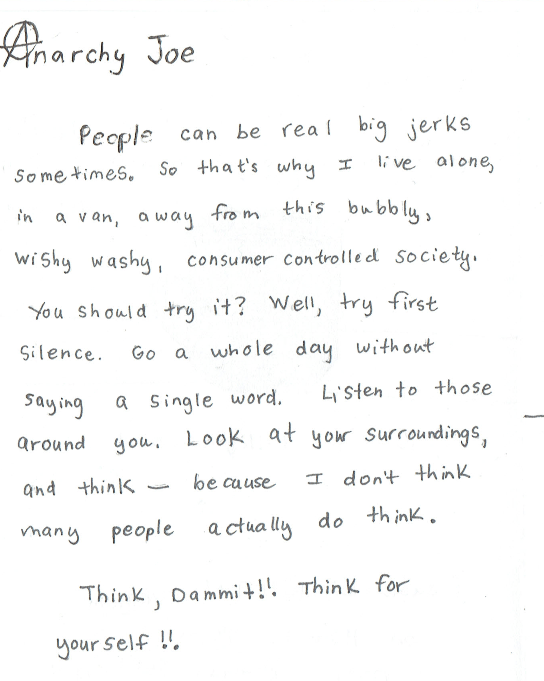 Anarchy Joe
People can be real big jerks
sometimes. So that's why I live alone,
in a van, away from this bubbly,
wishy washy, consumer controlled society.
You should try it? Well, try first
silence. Go a whole day without
saying a single word. Listen to those
around you. Look at your surroundings,
and think — because I don't think
many people actually do think.
Think, Dammit!!. Think for
yourself!!.